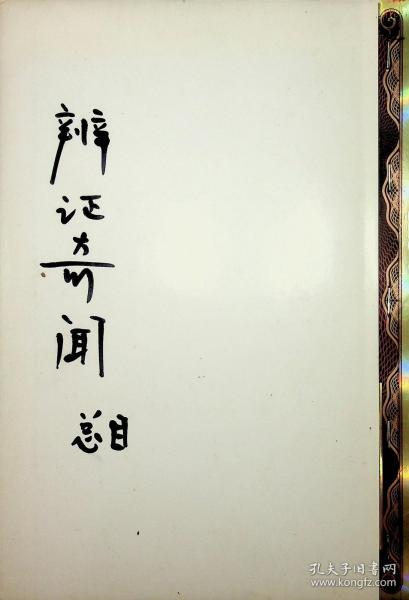 辨证奇闻
总目
孔夫子旧书网
www.kongfz.com